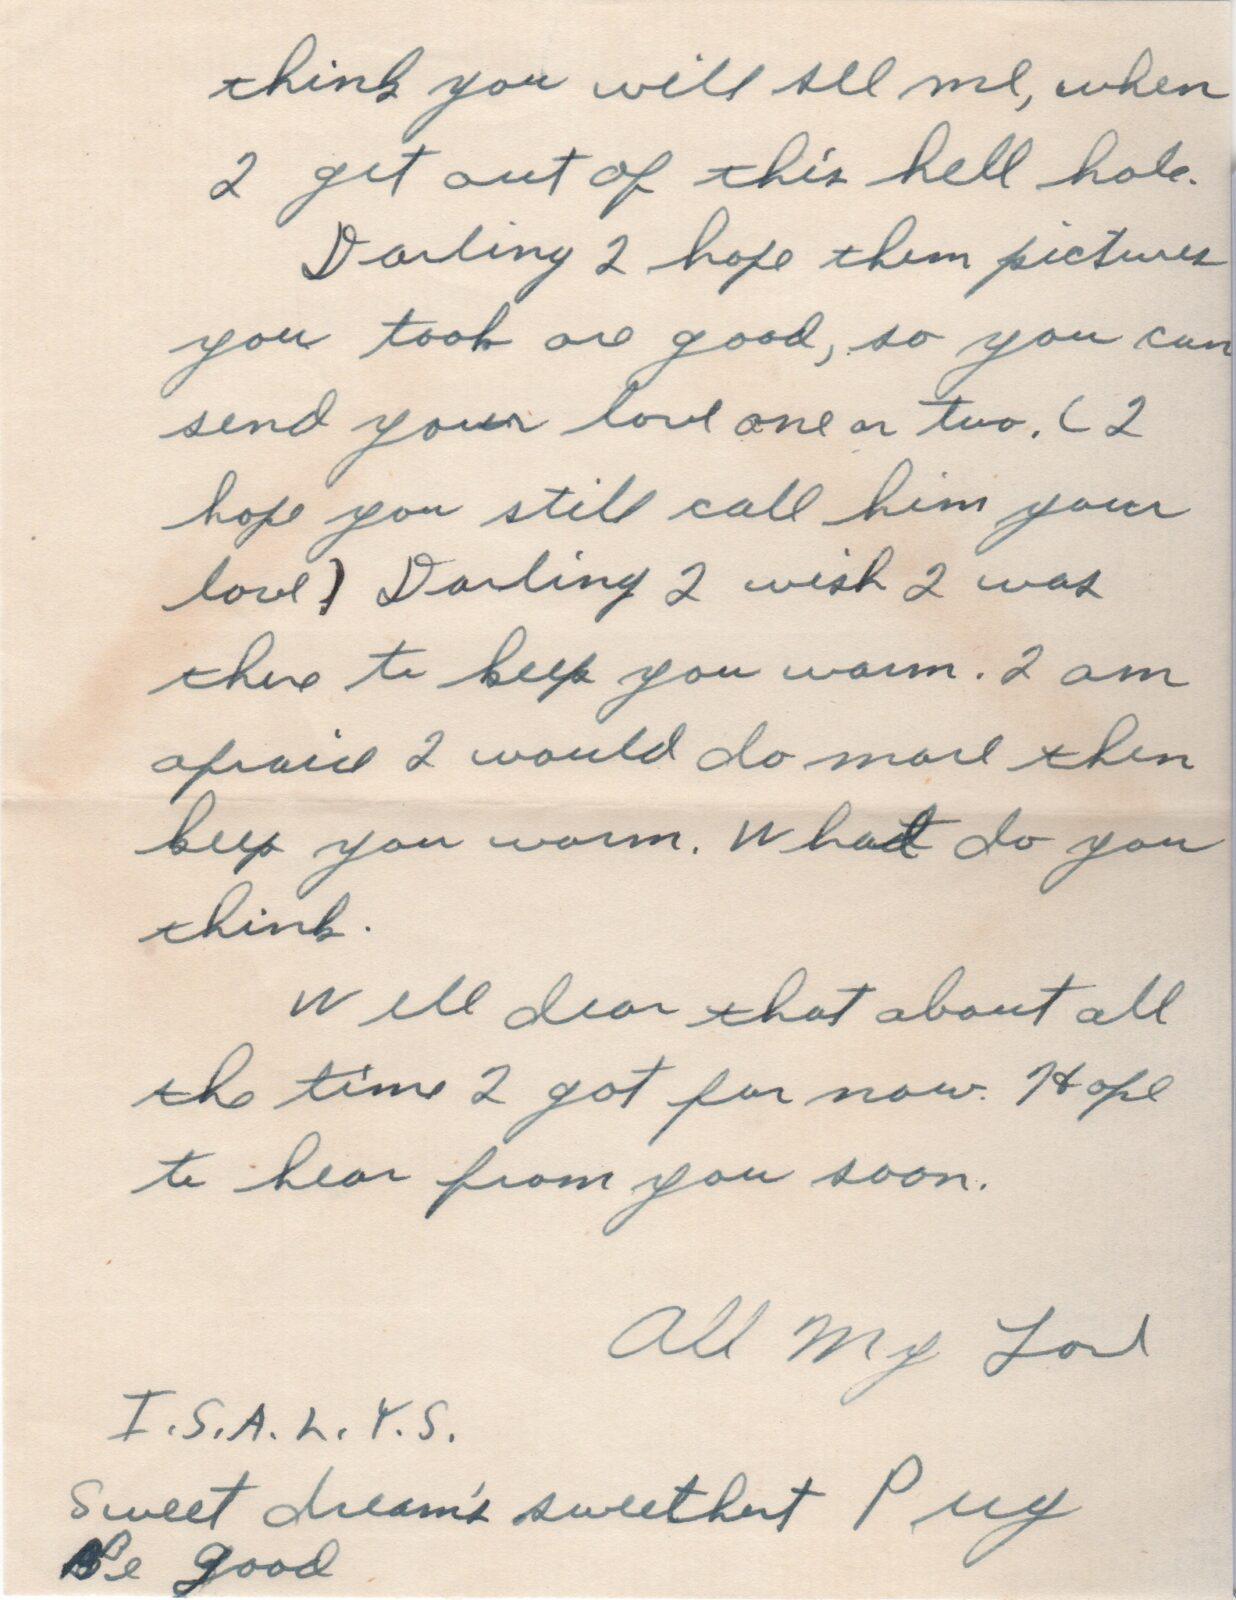 think you will see me, when
I get out of this hell hole.
Darling I hope them pictures
you took are good, so you can
send your love one or two. (I
hope you still call him your
love) Darling I wish I was
there to keep you warm. I am
afraid I would do more then
keep you warm. What do you
think.
Well dear that about all
the time I got for now. Hope
to hear from you soon.
All My Love
I.S.A.L.Y.S.
Sweet dream's sweethert Pug
Be good